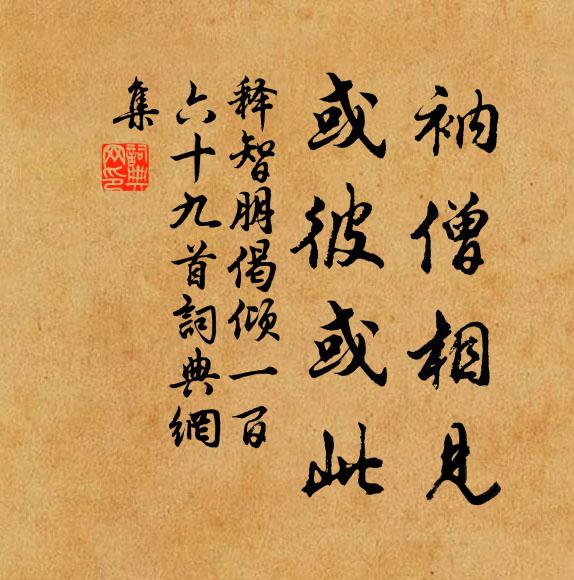 衲僧相見
或彼或此
释智朋偈倾一百
六十九首詞典網
集
詞典網印